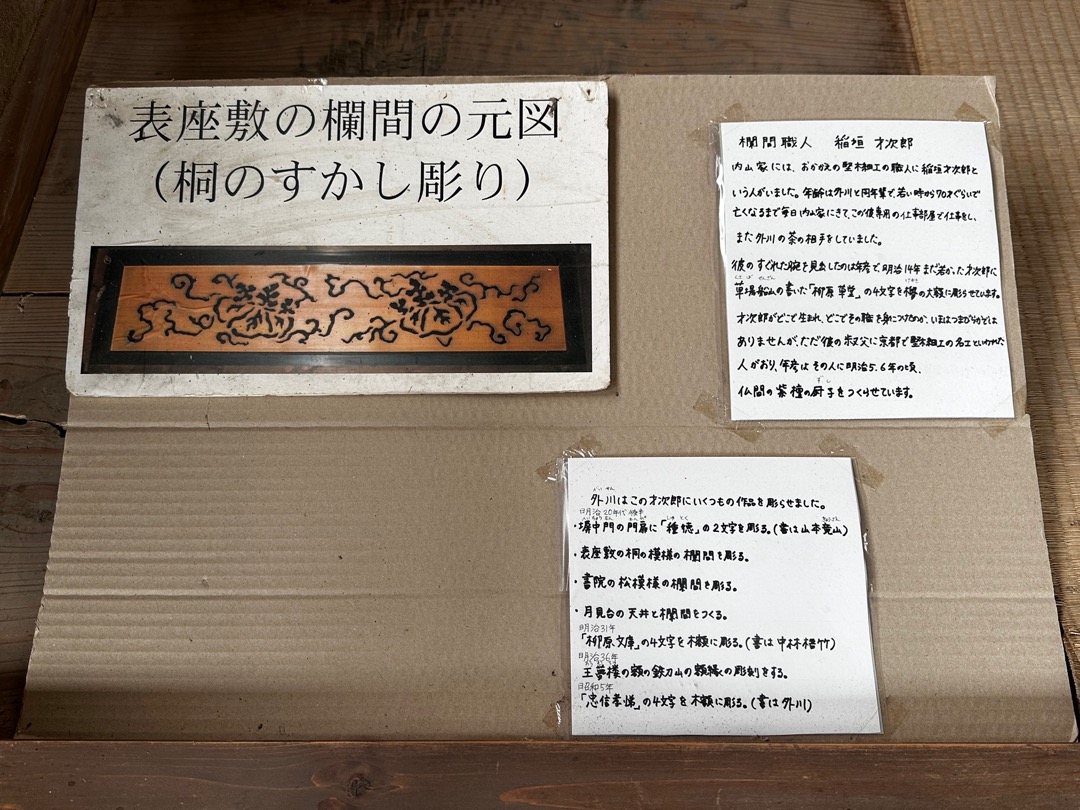 表座敷の欄間の元図
（桐のすかし彫り）
欄間職人　稲垣 才次郎
内山家には、おかかえの堅木細工の職人に稲垣才次郎と
いう人がいました。年齢は外川と同年輩で、若い時から70才ぐらいで
亡くなるまで毎日内山家にきて、この彼専用の仕事部屋で仕事をし、
また外川の茶の相手をしていました。
彼のすぐれた腕を見出したのは年彦で、明治14年まだ若かった才次郎に
草場船山の書いた「柳原草堂」の4文字を欅の大額に彫らせています。
才次郎がどこで生まれ、どこでその職を身につけたのか、いまはつまびらかでは
ありませんが、ただ彼の叔父に京都で堅木細工の名工といわれた
人がおり、年彦はその人に明治5.6年の頃、
仏間の紫檀の厨子をつくらせています。
外川はこの才次郎にいくつもの作品を彫らせました。
明治20年代後半
・塀中門の門扉に「種徳」の2文字を彫る。(書は山本竟山)
・表座敷の桐の模様の欄間を彫る。
・書院の松模様の欄間を彫る。
・月見台の天井と欄間をつくる。
明治31年
「柳原文庫」の4文字を木額に彫る。(書は中林梧竹)
明治36年
王夢楼の額の鉄刀山の額縁の彫刻をする。
昭和5年
「忠信孝悌」の4文字を木額に彫る。(書は外川)